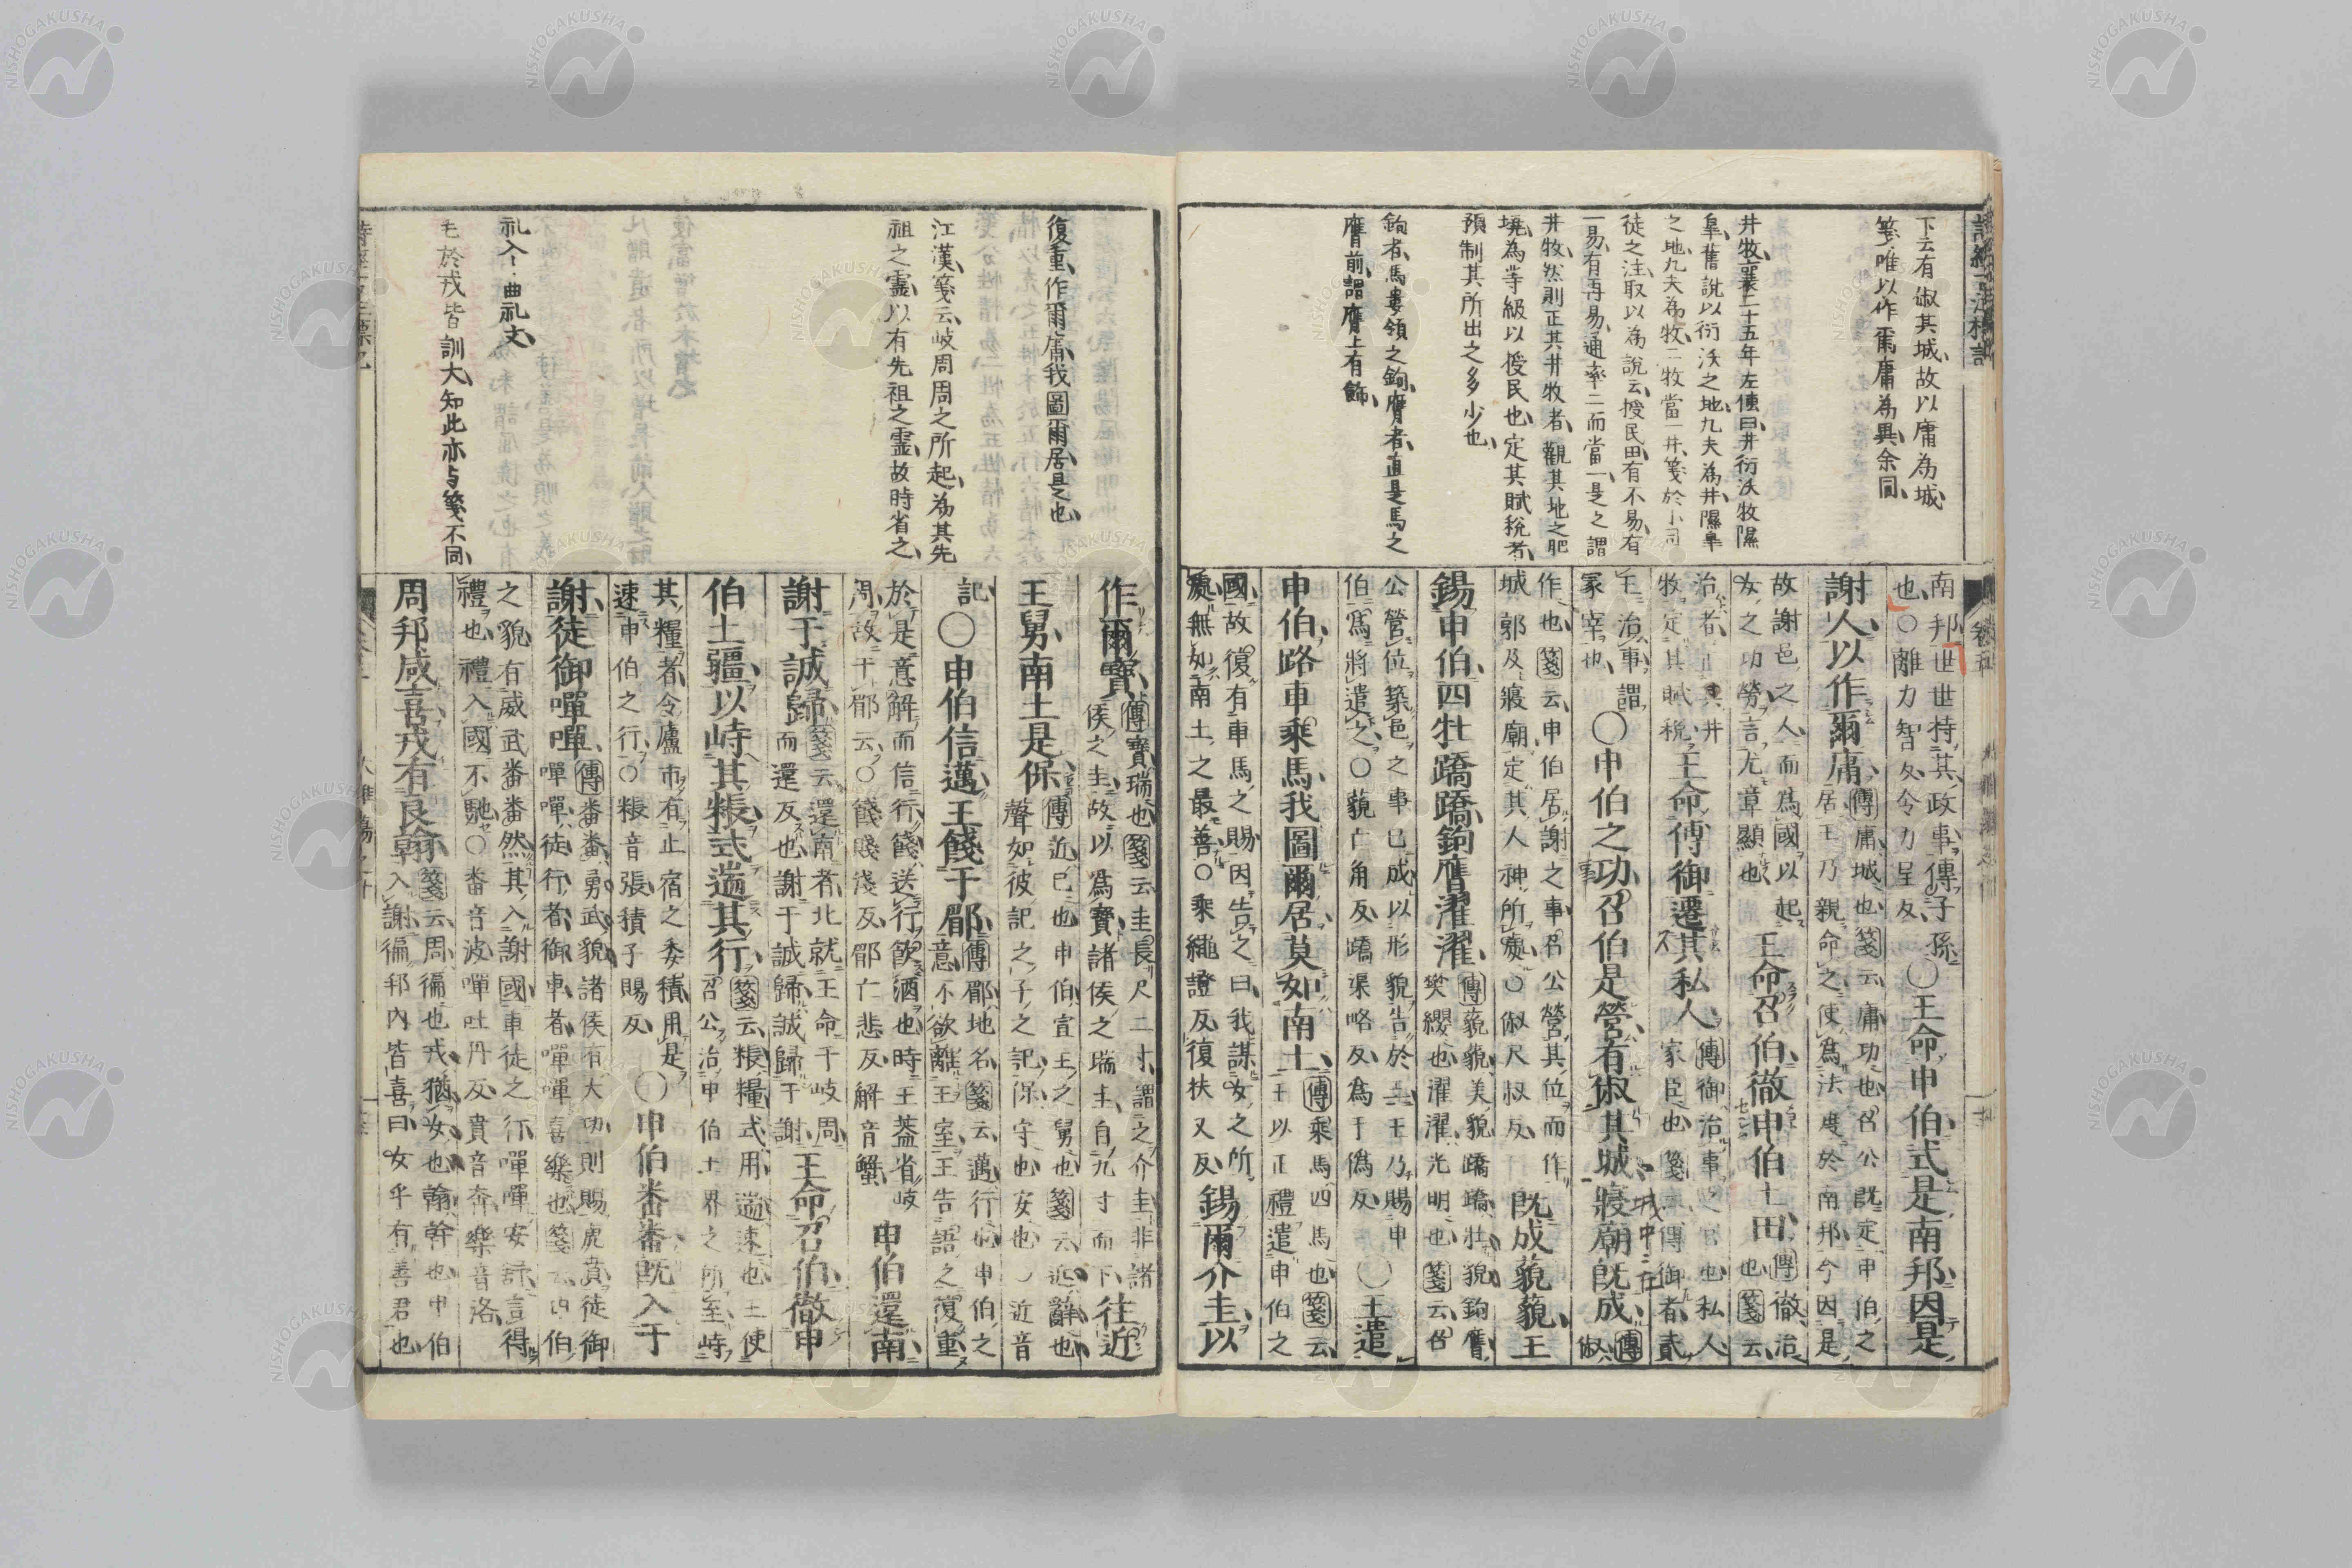 下云有俶其城故以庸為城
箋唯以作爾庸為異余同
井牧襄二十五年左傳曰井衍沃牧隰
皐舊說以衍沃之地九夫為井隰皐
之地九夫為牧二牧當一井箋於小司
徒之注取以為說云授民田有不易有
一易有再易通率二而當一是之謂
井牧然則正其井牧者觀其地之肥
墝為等級以授民也定其賦稅者
預制其所出之多少也
鉤者馬婁頷之鉤膺者直是馬之
膺前謂膺上有飾
南邦世世持其政事傳子孫也○離力智反令力呈反○王命申伯式是南邦因是
謝人以作爾庸傳庸城也箋云庸功也召公既定申伯之居王乃親命之使爲法度於南邦今因是
故謝邑之人而爲國以起女之功勞言尤章顯也王命召伯徹申伯土田傳徹治也箋云
治者正其井牧定其賦稅王命傅御遷其私人傳御治事之官也私人家臣也箋云傅御者貳
王治事謂冢宰也○申伯之功召伯是營有俶其城寢廟旣成傳俶
城中ニ在
作也箋云申伯居謝之事召公營其位而作城郭及寢廟定其人神所處○俶尺叔反旣成藐藐王
錫申伯四牡蹻蹻鉤膺濯濯傳藐藐美貌蹻蹻壯貌鉤膺樊纓也濯濯光明也箋云召
公營位築邑之事已成以形貌告於王王乃賜申伯爲將遣之○藐亡角反蹻渠略反爲于僞反○王遣
申伯路車乘馬我圖爾居莫如南土傳乘馬四馬也箋云王以正禮遣申伯之
國故復有車馬之賜因告之曰我謀女之所處無如南土之最善○乘繩證反復扶又反錫爾介圭以
復重作爾庸我圖爾居是也
江漢箋云岐周周之所起為其先
祖之靈以有先祖之靈故時省之
礼入ー曲礼文
毛於戎皆訓大知此亦与箋不同
作爾寶傳寶瑞也箋云圭長尺二寸謂之介圭非諸侯之圭故以爲寶諸侯之瑞圭自九寸而下往近
王舅南土是保傳近已也申伯宣王之舅也箋云近辭也聲如彼記之子之記保守也安也○近音
記○申伯信邁王餞于郿傳郿地名箋云邁行也申伯之意不欲離王室王告語之復重
於是意解而信行餞送行飮酒也時王蓋省岐周故于郿云○餞賤淺反郿亡悲反解音蟹申伯還南
謝于誠歸箋云還南者北就王命于岐周而還反也謝于誠歸誠歸于謝王命召伯徹申
伯土疆以峙其粻式遄其行箋云粻糧式用遄速也王使召公治申伯土界之所至峙
其糧者令廬市有止宿之委積用是速申伯之行○粻音張積子賜反○申伯番番旣入于
謝徒御嘽嘽傳番番勇武貌諸侯有大功則賜虎賁徒御嘽嘽徒行者御車者嘽嘽喜樂也箋云申伯
之貌有威武番番然其入謝國車徒之行嘽嘽安舒言得禮也禮入國不馳○番音波嘽吐丹反賁音奔樂音洛
周邦咸喜戎有良翰箋云周徧也戎猶女也翰幹也申伯入謝徧邦內皆喜曰女乎有善君也